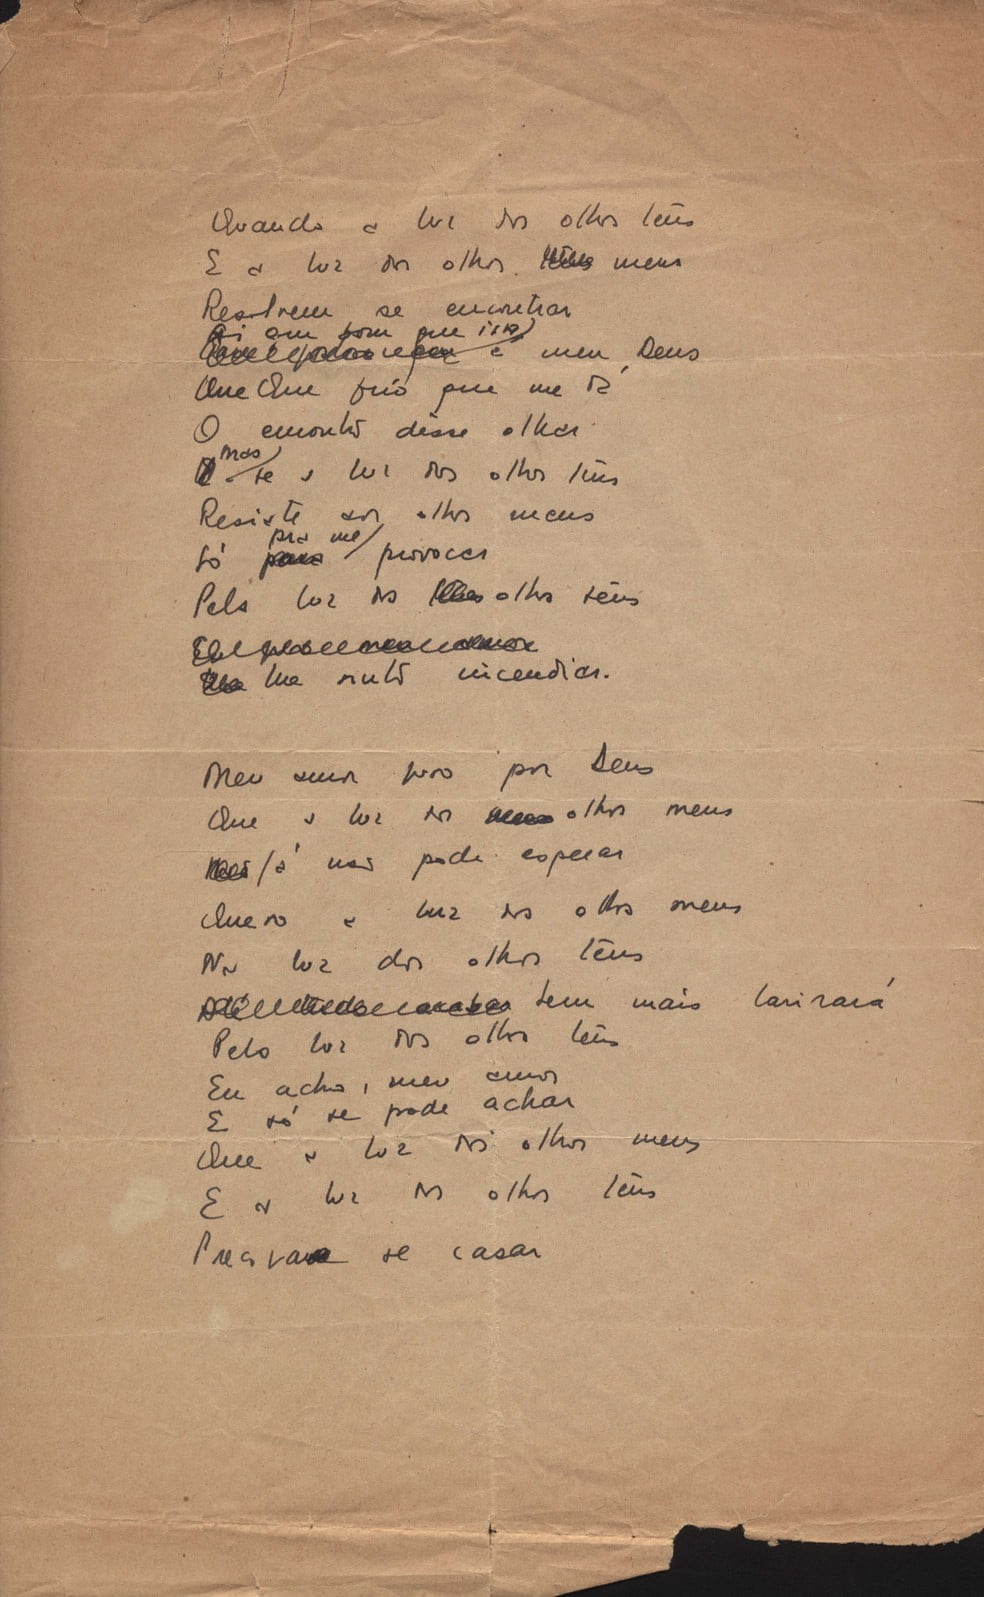 Quando a luz dos olhos teus
E a luz dos olhos meus
Resolvem se encontrar
Ai que bom que isso
é meu Deus
Que Que frio que me dá
O encontro dêsse olhar
mas
se a luz dos olhos teus
Resiste aos olhos meus
pra me
Só provocar
Pela luz dos olhos teus
me sinto incendiar.
Meu amor juro por Deus
Que a luz dos olhos meus
já não pode esperar
Quero a luz dos olhos meus
Na luz dos olhos teus
sem mais lari rará
Pela luz dos olhos teus
Eu acho, meu amor
E só se pode achar
Que a luz dos olhos meus
E a luz dos olhos teus
Precisa se casar